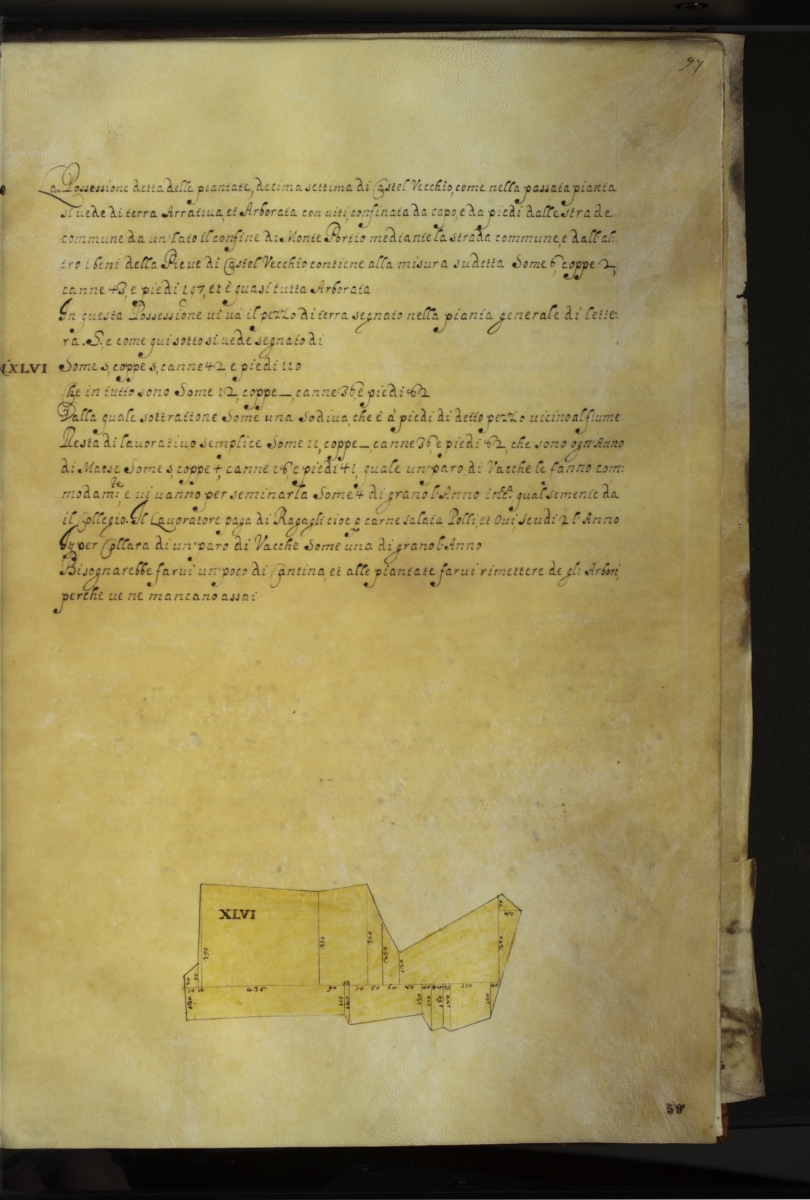 97
La Possessione detta delle piantate, decima settima di Castel Vecchio, come nella passata pianta
si uede di terra Arratiua, et Arborata con uiti, confinata da capo, e da piedi dalle strade
commune da un'lato il confine di Monte Portio mediante la strada commune, e dall'al:
tro i beni della Pieue di Castel Vecchio contiene alla misura sudetta Some 6, coppe 2,
canne 43, e piedi 197, et è quasi tutta Arborata
In questa Possessione ui uà il pezzo di terra segnato nella pianta generale di lette:
ra .S. e come qui sotto si uede segnato di
XLVI Some 5, coppe 5, canne 42, e piedi 110
Che in tutto sono Some 12, coppe _ canne 36 e piedi 82
Dalla quale sottrattone Some una Sodiua, che è a piedi di detto pezzo uicino al fiume
Resta di lauoratiuo semplice Some 11, coppe _ canne 36 e piedi 82, che sono ogn'Anno
di Maese Some 5 coppe 4, canne 18 e piedi 41, quale un'paro di Vacche le fanno com:
modam.te, e ui uanno per seminarla Some 4 di grano l'Anno qual semente da
il Collegio. Il Lauoratore paga di Regagli cioè carne salata Polli, et Oui, scudi 2 l'Anno
Et per Collara di un'paro di Vacche Some una di grano l'Anno
Bisognarebbe farui un'poco di Cantina, et alle piantate farui rimettere de gli Arbori,
perche ue ne mancano assai
XLVI
435
90
70
50
50
40
110
59